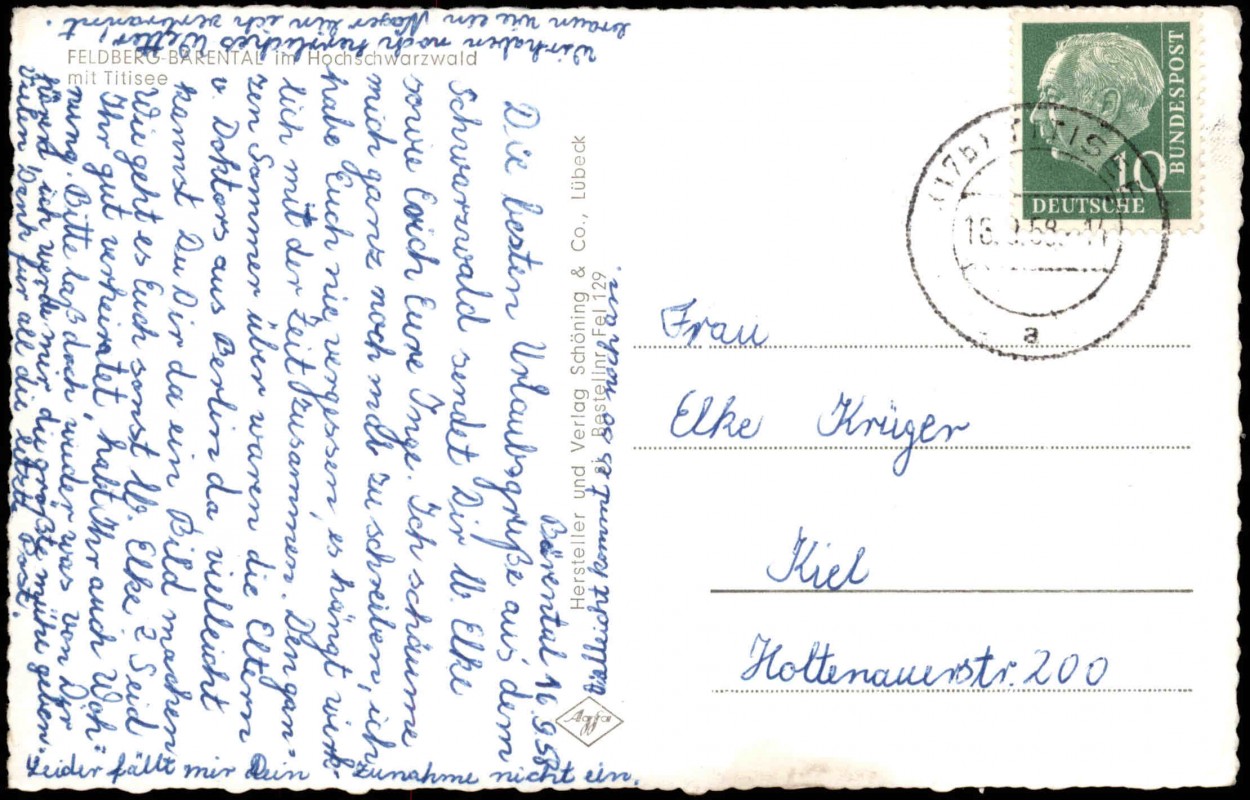 FELDBERG-BÄRENTAL im Hochschwarzwald
mit Titisee
Bärental 16.9.58
Die besten Urlaubsgrüße aus dem
Schwarzwald sendet Dir lb. Elke
sowie Euch Eure Inge. Ich schäume
mich ganz noch mal zu schreiben, ich
habe Euch nie vergessen, es hängt wirk-
lich mit der Zeit zusammen. Den gan-
zen Sommer über waren die Eltern
v. Doktors aus Berlin da vielleicht
kannst Du Dir da ein Bild machen
Wie geht es Euch sonst lb. Elke? Seid
Ihr gut verheiratet, habt Ihr auch Woh-
nung. Bitte laß doch wieder was von Dir
hören ich werde mir die größte mühe geben.
Vielen Dank für all die letzte Post.
Wir haben noch herrliches Wetter,
braun wie ein Neger bin ich verbrannt.
Leider fällt mir Dein Zunahme nicht ein.
Vielleicht kommt es so wohl an.
Hersteller und Verlag Schöning & Co., Lübeck
Bestellnr. Fel 129
Agfa
BUNDESPOST
10
DEUTSCHE
(17b) TITISEE
16.9.58.-14
a
Frau
Elke Krüger
Kiel
Holtenauerstr. 200